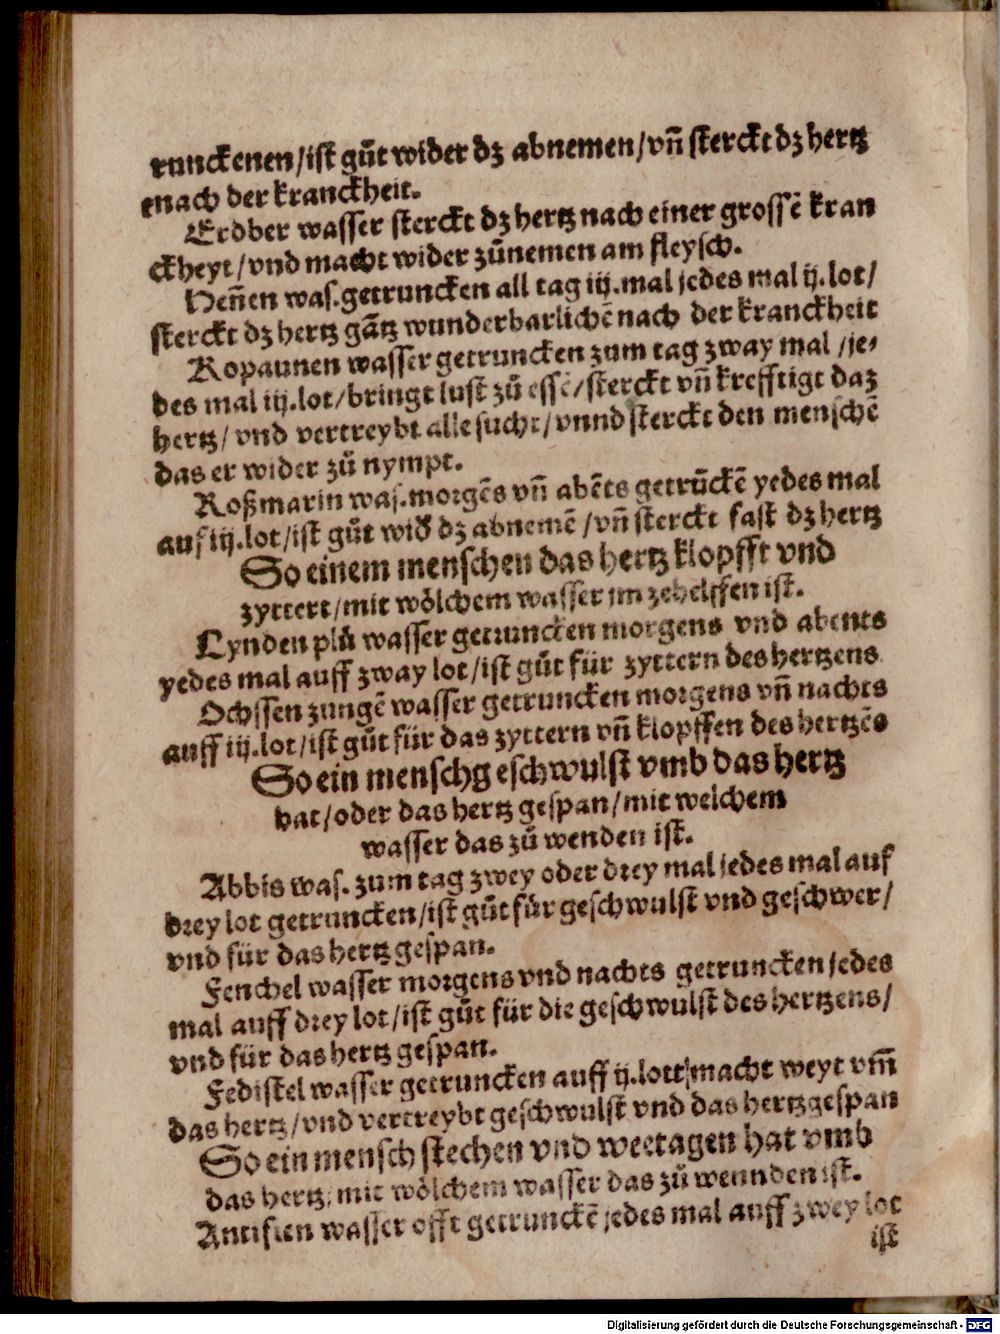 runckenen/ist gůt wider dz abnemen/vñ sterckt dz hertz
enach der kranckheit.
Erdber wasser sterckt dz hertz nach einer grossē kran
ckheyt/vnd macht wider zůnemen am fleysch.
Heñen was.getruncken all tag iij.mal jedes mal ij.lot/
sterckt dz hertz gātz wunderbarlichē nach der kranckheit
Kopaunen wasser getruncken zum tag zway mal /je⸗
des mal iij.lot/bringt lust zů essē/sterckt vñ krefftigt daz
hertz/ vnd vertreybt alle sucht/vnnd sterckt den menschē
das er wider zů nympt.
Roßmarin was.morgēs vñ abēts getrūckē yedes mal
auf iij.lot/ist gůt wid̓ dz abnemē /vñ sterckt fast dz hertz
So einem menschen das hertz klopfft vnd
zyttert/mit wölchem wasser jm zehelffen ist.
Lynden plů wasser getruncken morgens vnd abents
yedes mal auff zway lot/ist gůt für zyttern des hertzens
Ochssen zungē wasser getruncken morgens vñ nachts
auff iij.lot/ist gůt für das zyttern vñ klopffen des hertzēs
So ein mensch geschwulst vmb das hertz
hat/oder das hertz gespan/mit welchem
wasser das zů wenden ist.
Abbis was. zum tag zwey oder drey mal jedes mal auf
drey lot getruncken/ist gůt für geschwulst vnd geschwer/
vnd für das hertz gespan.
Fenchel wasser morgens vnd nachts getruncken jedes
mal auff drey lot/ist gůt für die geschwulst des hertzens/
vnd für das hertz gespan.
Fedistel wasser getruncken auff ij.lott/macht weyt vm̃
das hertz/vnd vertreybt geschwulst vnd das hertzgespan
So ein mensch stechen vnd weetagen hat vmb
das hertz, mit wölchem wasser das zů wennden ist.
Antifien wasser offt getrunckē jedes mal auff zwey lot
ist
Digitalisierung gefördert durch die Deutsche Forschungsgemeinschaft - DFG